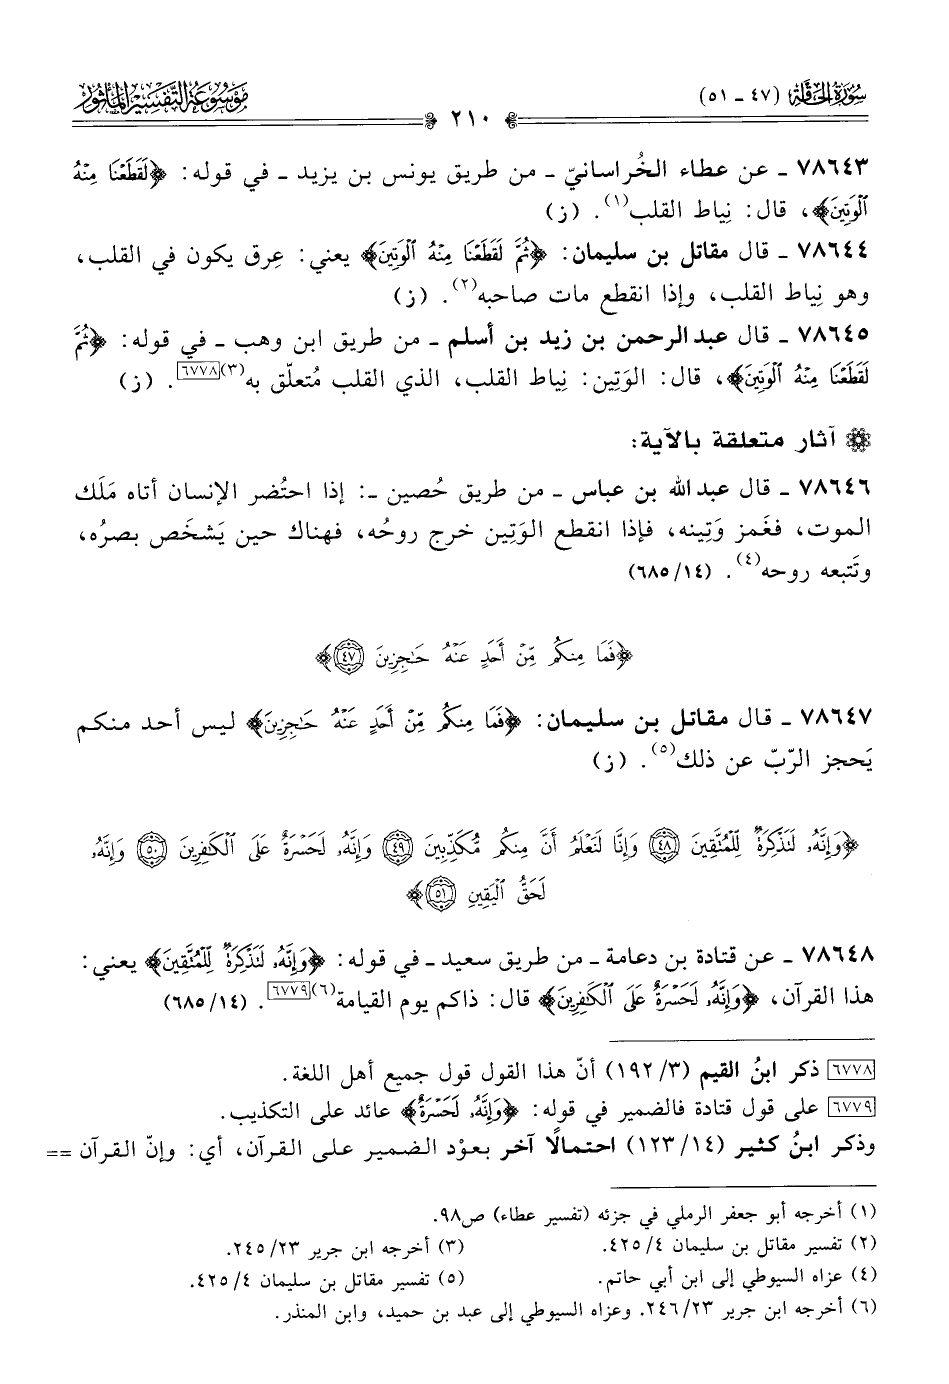 سورة الحاقة (٤٧ - ٥١)
موسوعة التفسير المأثور
٢١٠
٧٨٦٤٣ - عن عطاء الخُراسانيّ - من طريق يونس بن يزيد - في قوله: ﴿لَقَطَعْنَا مِنْهُ
الْوَتِينَ﴾، قال: نِياط القلب(١). (ز)
٧٨٦٤٤ - قال مقاتل بن سليمان: ﴿ثُمَّ لَقَطَعْنَا مِنْهُ الْوَتِينَ﴾ يعني: عِرق يكون في القلب،
وهو نِياط القلب، وإذا انقطع مات صاحبه(٢). (ز)
٧٨٦٤٥ - قال عبد الرحمن بن زيد بن أسلم - من طريق ابن وهب - في قوله: ﴿ثُمَّ
لَقَطَعْنَا مِنْهُ الْوَتِينَ﴾، قال: الوَتِين: نِياط القلب، الذي القلب مُتعلّق به(٣)[٦٧٧٨]. (ز)
آثار متعلقة بالآية:
٧٨٦٤٦ - قال عبد الله بن عباس - من طريق حُصين -: إذا احتُضر الإنسان أتاه مَلَك
الموت، فغَمز وَتِينه، فإذا انقطع الوَتِين خرج روحُه، فهناك حين يَشخَص بصرُه،
وتَتبعه روحه(٤). (١٤/ ٦٨٥)
﴿فَمَا مِنكُم مِّنْ أَحَدٍ عَنْهُ حَاجِزِينَ ٤٧﴾
٧٨٦٤٧ - قال مقاتل بن سليمان: ﴿فَمَا مِنكُم مِّنْ أَحَدٍ عَنْهُ حَاجِزِينَ﴾ ليس أحد منكم
يَحجز الرّبّ عن ذلك(٥). (ز)
﴿وَإِنَّهُ لَتَذْكِرَةٌ لِّلْمُتَّقِينَ ٤٨ وَإِنَّا لَنَعْلَمُ أَنَّ مِنكُم مُّكَذِّبِينَ ٤٩ وَإِنَّهُ لَحَسْرَةٌ عَلَى الْكَافِرِينَ ٥٠ وَإِنَّهُ
لَحَقُّ الْيَقِينِ ٥١﴾
٧٨٦٤٨ - عن قتادة بن دعامة - من طريق سعيد - في قوله: ﴿وَإِنَّهُ لَتَذْكِرَةٌ لِّلْمُتَّقِينَ﴾ يعني:
هذا القرآن، ﴿وَإِنَّهُ لَحَسْرَةٌ عَلَى الْكَافِرِينَ﴾ قال: ذاكم يوم القيامة(٦)[٦٧٧٩]. (١٤/ ٦٨٥)
[٦٧٧٨] ذكر ابنُ القيم (٣/ ١٩٢) أنّ هذا القول قول جميع أهل اللغة.
[٦٧٧٩] على قول قتادة فالضمير في قوله: ﴿وَإِنَّهُ لَحَسْرَةٌ﴾ عائد على التكذيب.
وذكر ابنُ كثير (١٤/ ١٢٣) احتمالًا آخر بعوْد الضمير على القرآن، أي: وإنّ القرآن ==
(١) أخرجه أبو جعفر الرملي في جزئه (تفسير عطاء) ص٩٨.
(٢) تفسير مقاتل بن سليمان ٤/ ٤٢٥. (٣) أخرجه ابن جرير ٢٣/ ٢٤٥.
(٤) عزاه السيوطي إلى ابن أبي حاتم. (٥) تفسير مقاتل بن سليمان ٤/ ٤٢٥.
(٦) أخرجه ابن جرير ٢٣/ ٢٤٦. وعزاه السيوطي إلى عبد بن حميد، وابن المنذر.